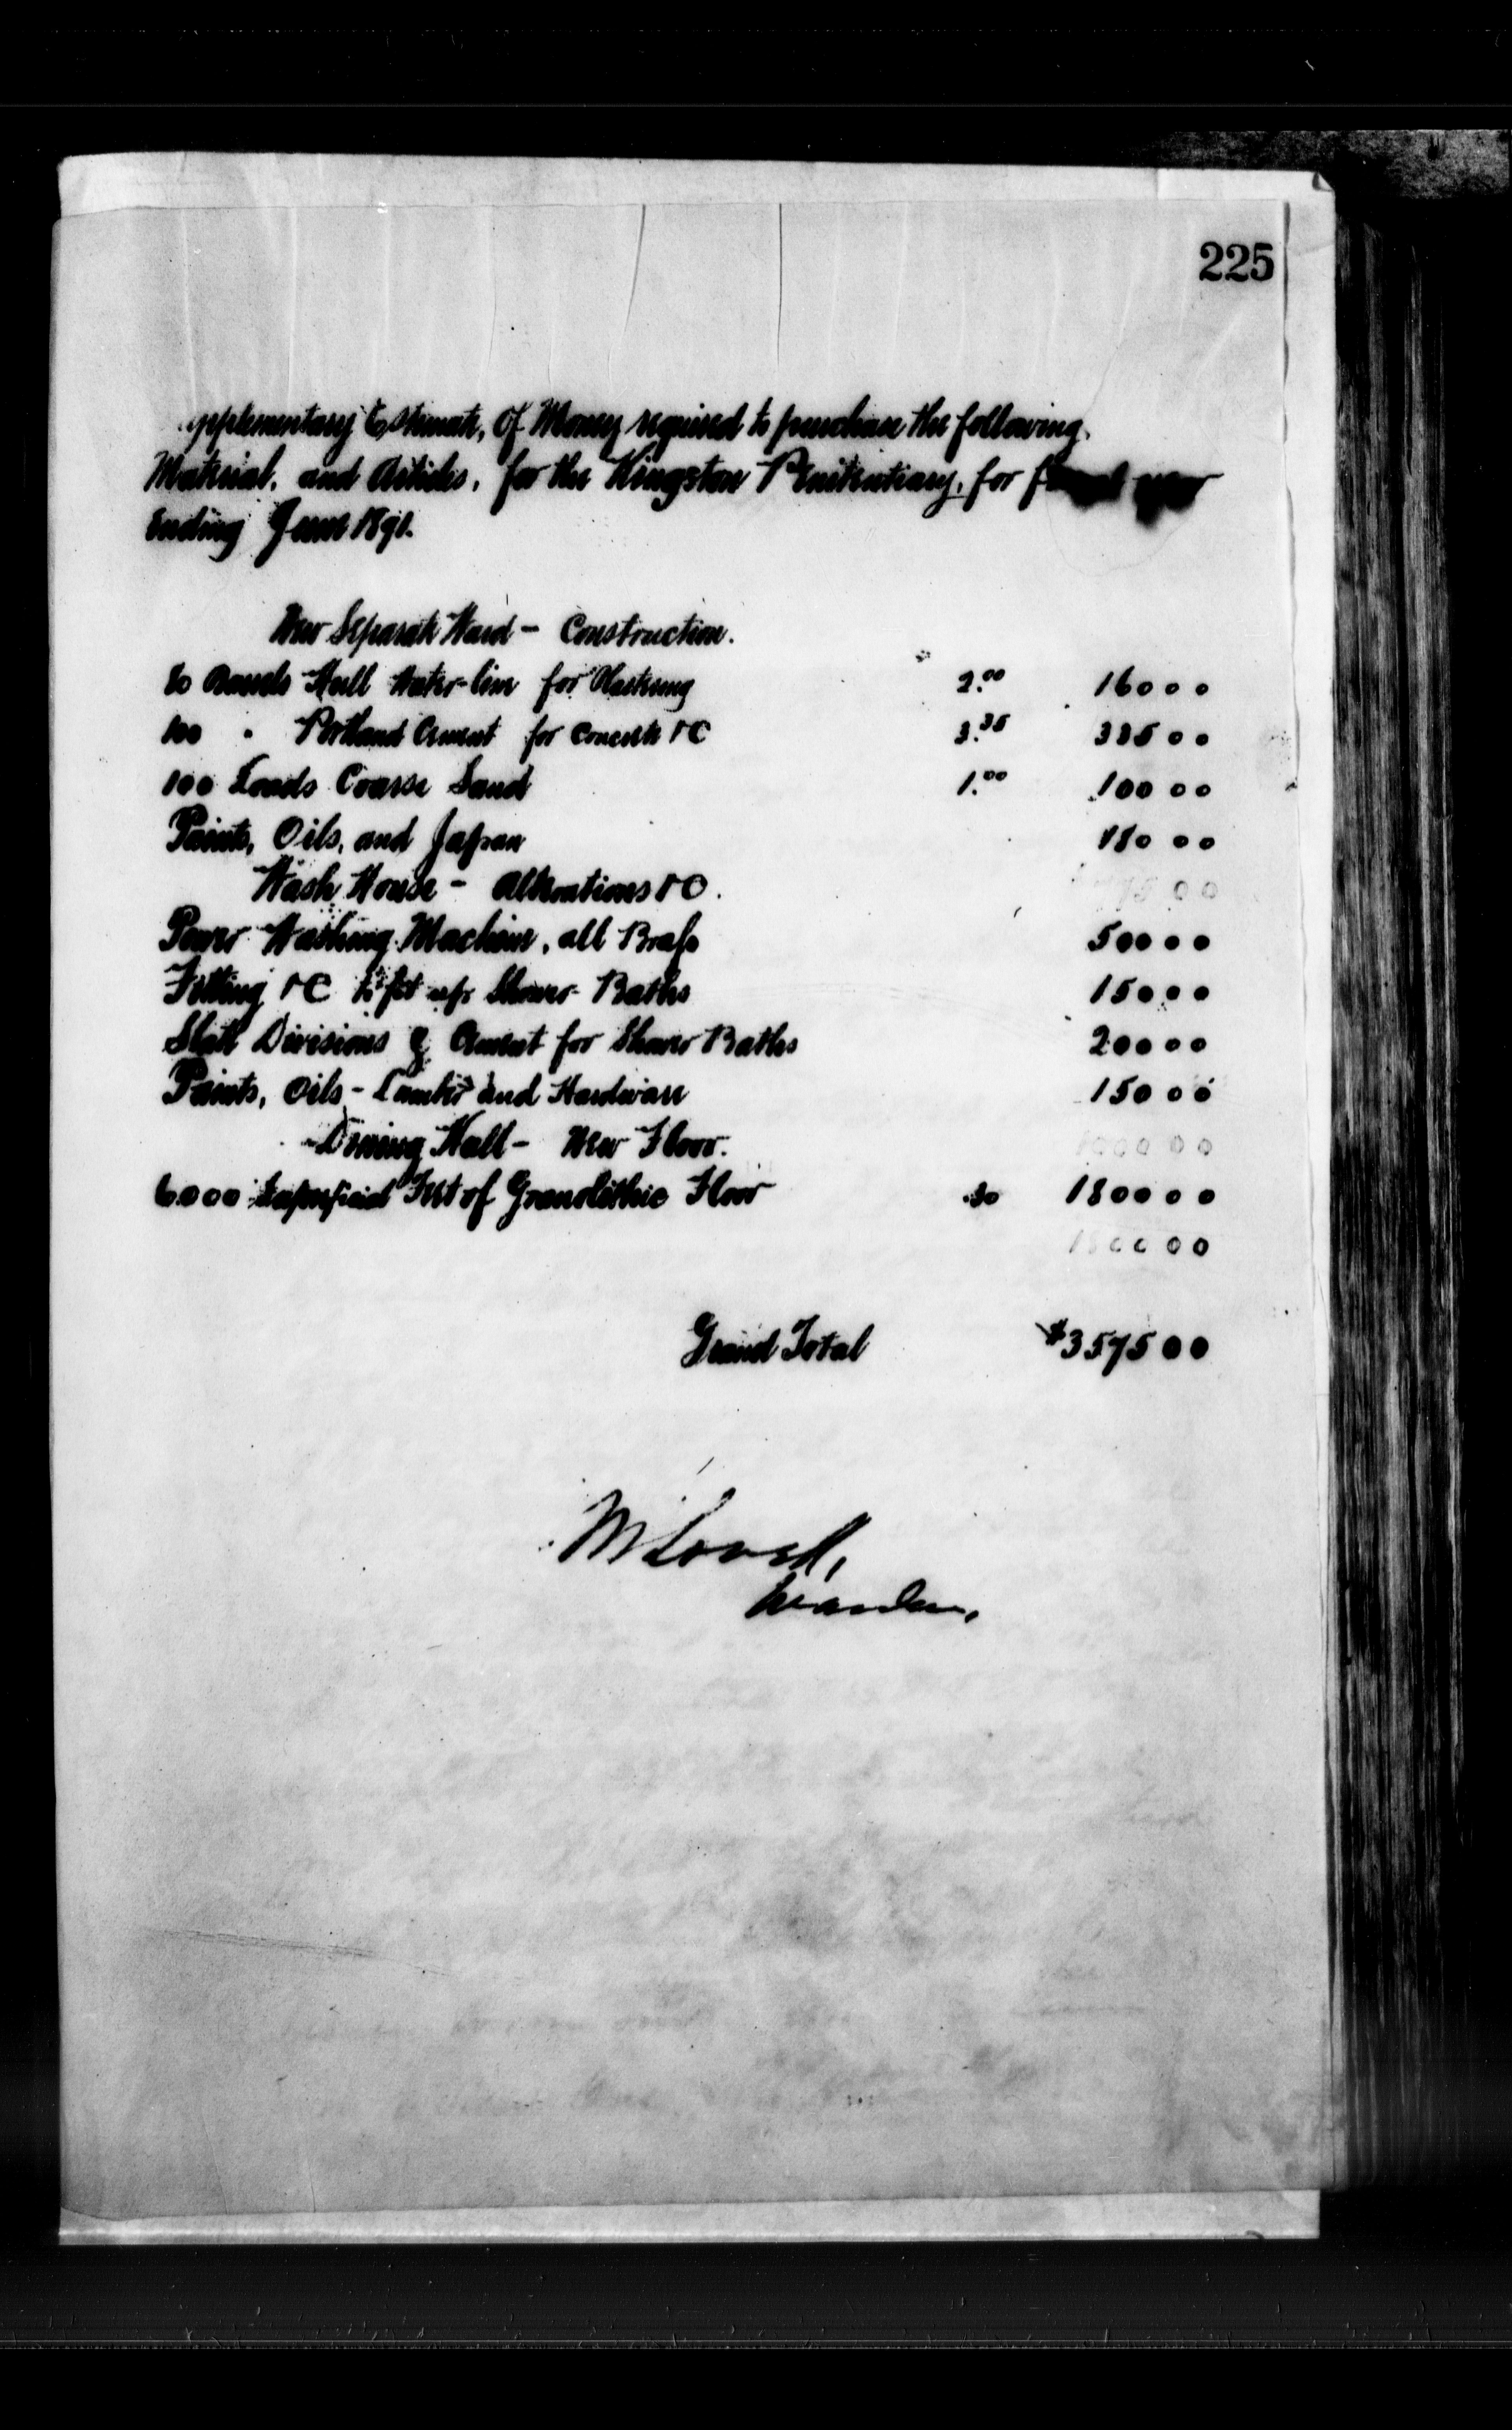 225
Supplementary Estimate, of Money required to purchase the following.
Material, and Articles, for the Kingston Penitentiary, for fiscal year
Ending June 1891.
New Separate Ward - Construction.
80 Barrels Hull Water-lime for Plastering 2.00 160 00
100 " Portland Cement for Concrete &C 3.35 335 00
100 Loads Coarse Sand 1.00 100 00
Paints, Oils, and Japan 180 00
Wash House - Alterations &C. 775 00
Power Washing Machine, all Brass 500 00
Fitting &C to fit up Shower Baths 150 00
Slate Divisions & Cement for Shower Baths 200 00
Paints, Oils - Lumber and Hardware 150 00
Dining Hall - New Floor. 1000 00
6000 Superficial Feet of Granolithic Floor .30 1800 00
1800 00
Grand Total $3575 00
M Lavell,
Warden.